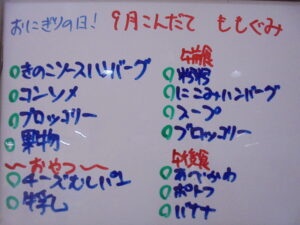 おにぎりの日! 9月こんだて ももぐみ
きのこソースハンバーグ
コンソメ
ブロッコリー
果物
〜おやつ〜
チーズむしパン
牛乳
午前食
にこみハンバーグ
スープ
ブロッコリー
午後食
あべかわ
ポトフ
バナナ